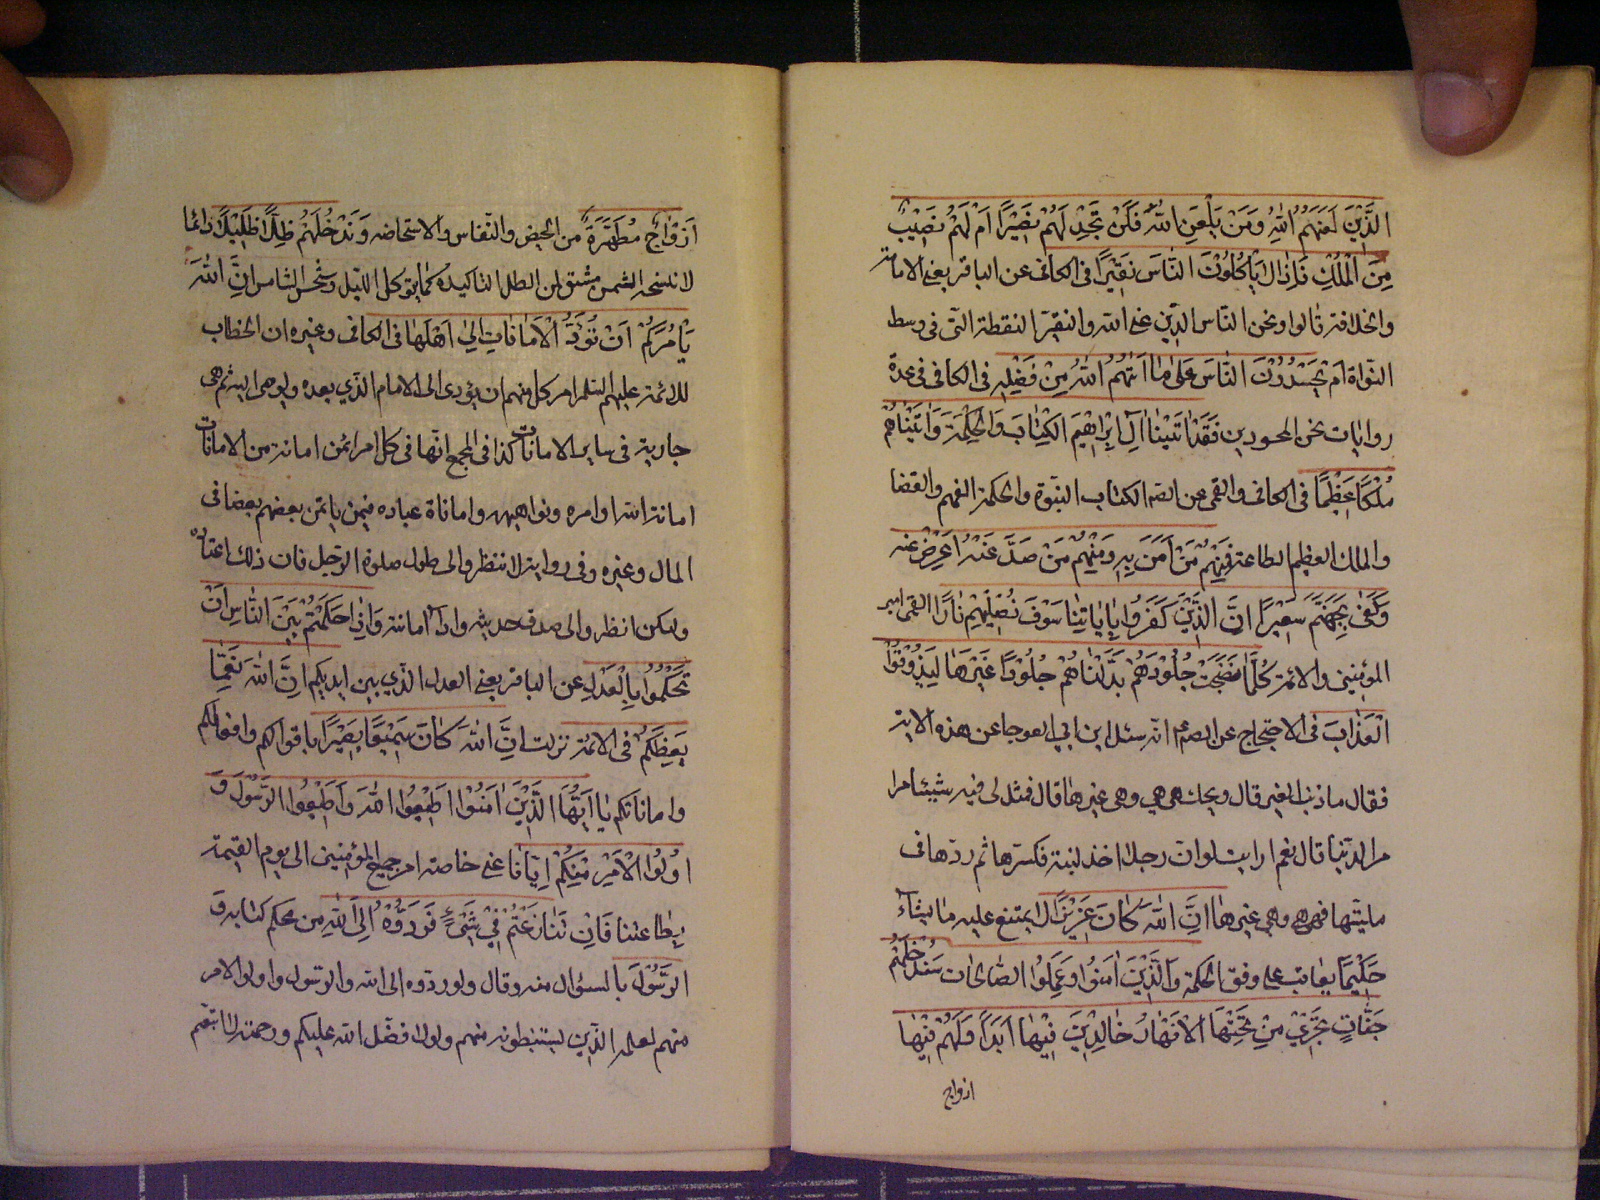 الَّذِيْنَ لَعَنَهُمُ اللهُ وَمَنْ يَلْعَنِ اللهُ فَلَنْ تَجِدَ لَهُمْ نَصِيْرًا اَمْ لَهُمْ نَصِيْبٌ
مِنَ الْمُلْكِ فَاِذًا لَا يَاكُلُوْنَ النَّاسَ نَقِيْرًا فى الكافى عن الباقر يعنى الامامة
والخلافة قالوا ونحن النّاس الذين عنى الله والنقير النقطة التى فى وسط
النواة ام يَحْسُدُوْنَ النَّاسَ عَلىٰ مَا اٰتٰهُمُ اللهُ مِنْ فَضْلِهِ فى الكافى فى عدة
روايات نحن المحسودين فَقَدْ اٰتَيْنَا اٰلَ اِبْرٰاهِيْمَ الْكِتٰابَ وَالْحِكْمَةَ وَاٰتَيْنٰاهُمْ
مُلْكًا عَظِيْمًا فى الكافى والقمى عن الصّ الكتاب النبّوة والحكمة الفهم والقضا
والملك العظيم الطاعة فَمِنْهُمْ مَنْ اٰمَنَ بِهِ وَمِنْهُمْ مَنْ صَدَّ عَنْهُ اعرض عنه
وَكَفىٰ بِجَهَنَّمَ سَعِيْرًا اِنَّ الَّذِيْنَ كَفَرُوا بِاٰيٰاتِنٰا سَوْفَ نُصْلِيْهِمْ نٰارًا القمى امير
المؤمنين والائمة كُلَّمٰا نَضِجَتْ جُلُوْدُهُمْ بَدَّلْنٰاهُمْ جُلُوْدًا غَيْرَهٰا لِيَذُوْقُوْا
الْعَذٰابَ فى الاحتجاج عن الصّ انه سئل ابن ابي العوجا عن هذه الاية
فقال ما ذنب الغير قال ويحك هى هى وهى غيرها قال فمثل لى فيه شيئا من
امر الدّنيا قال نعم ارايت لو ان رجلا اخذ لبنة فكسرها ثم ردّها فى
ملبنها فهى هى وهى غيرها اِنَّ اللهَ كٰانَ عَزِيْزًا لا يمتنع عليه ما يشاء
حَكِيْمًا يعاقب على وفق الحكمة وَالَّذِيْنَ اٰمَنُوْا وَعَمِلُوْا الصّٰالِحٰاتِ سَنُدْخِلُهُمْ
جَنّٰاتٍ تَجْرِيْ مِنْ تَحْتِهَا الْاَنْهَارُ خٰالِدِيْنَ فِيْهٰا اَبَدًا وَلَهُمْ فِيْهٰا
ازواج
اَزْوٰاجٌ مُطَهَّرَةٌ من الحيض والنّفاس والاستحاضه وَنُدْخِلُهُمْ ظِلًّا ظَلِيْلًا دائما
لا تنسخه الشمس مشتق من الظل لتاكيده كما يقال ليل وشمس شامس اِنَّ اللهَ
يَأْمُرُكُمْ اَنْ تُؤَدُّوا الْاَمٰانٰاتِ اِلىٰ اَهْلِهٰا فى الكافى وغيره ان الخطاب
للائمة عليهم السّلم امر كل منهم ان يؤدى الى الامام الّذي بعده ويوصى اليه ثم هى
جارية فى ساير الامانات كذا فى المجمع انها فى كل امرائمن امانة من الامانات
امانة الله اوامره ونواهيه واماناة عباده فيمن ياتمن بعضهم بعضا فى
المال وغيره وفى رواية لا تنظروا الى طول صلوة الرّجل فان ذلك اعتاده
ولكن انظروا الى صدق حديثه واداء امانته وَاِذٰا حَكَمْتُمْ بَيْنَ النّٰاسِ اَنْ
تَحْكُمُوْا بِالْعَدْلِ عن الباقر يعنى العدل الّذي بين ايديكم اِنَّ اللهَ نِعِمّٰا
يَعِظُكُمْ فى الائمة نزلت اِنَّ اللهَ كٰانَ سَمِيْعًا بَصِيْرًا باقوالكم وافعالكم
واماناتكم يٰا اَيُّهَا الَّذِيْنَ اٰمَنُوْا اَطِيْعُوا اللهَ وَاَطِيْعُوا الرَّسُوْلَ وَ
اُولُوا الْاَمْرِ مِنْكُمْ ايانا عنى خاصة امر جميع المؤمنين الى يوم القيمة
بطاعتنا فَاِنْ تَنٰازَعْتُمْ فِيْ شَيْءٍ فَرُدُّوْهُ اِلَى اللهِ من محكم كتابه وَ
الرَّسُوْلَ بالسئوال منه وقال ولو ردّوه الى الله والرّسول واولو الامر
منهم لعلمه الّذين يستنبطونه منهم ولولا فضل الله عليكم ورحمته لاتبعتم